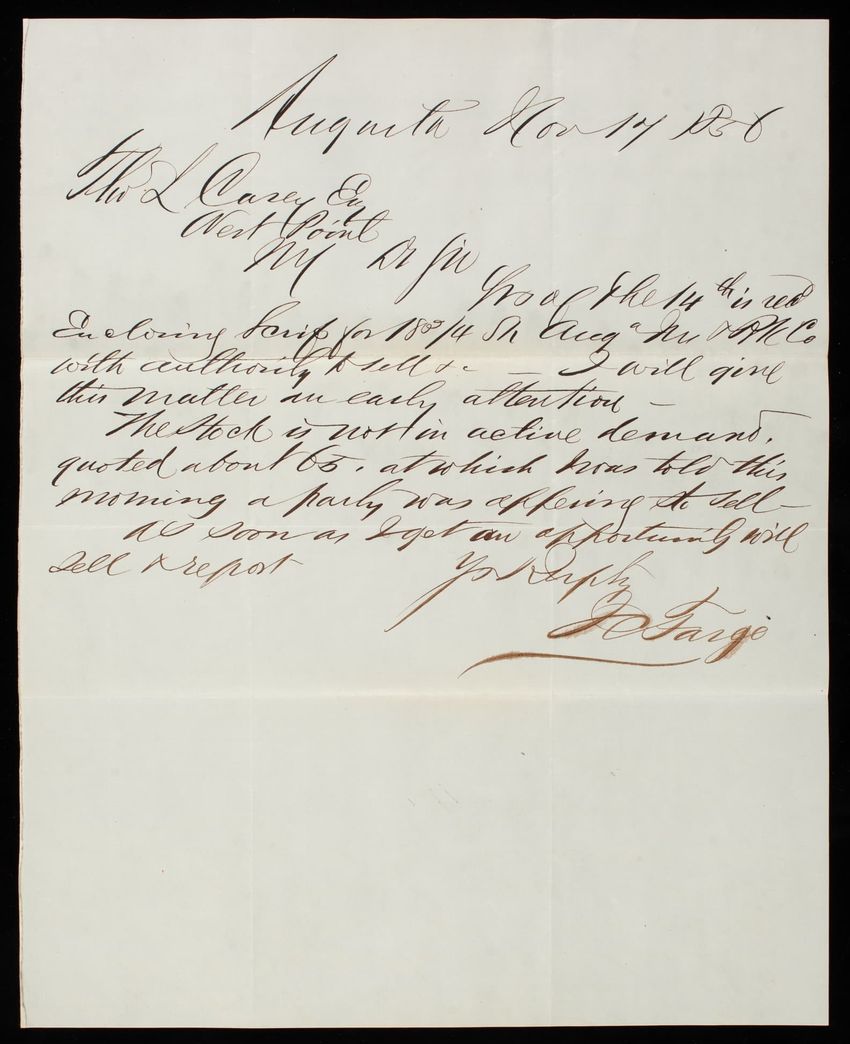 Augusta Nov 17 1856
Thos L Casey Eq
West Point
NY Dr Sir
Yrs of the 14th is recd
Enclosing Scrip for 18 3/4 Sh Auga In & B Co
with authority to sell &c — I will give
this matter an early attention —
The stock is not in active demand,
quoted about 65. at which I was told this
morning a party was offering to sell —
as soon as I get an opportunity will
sell & report
Yrs Respfly
J C Fargo